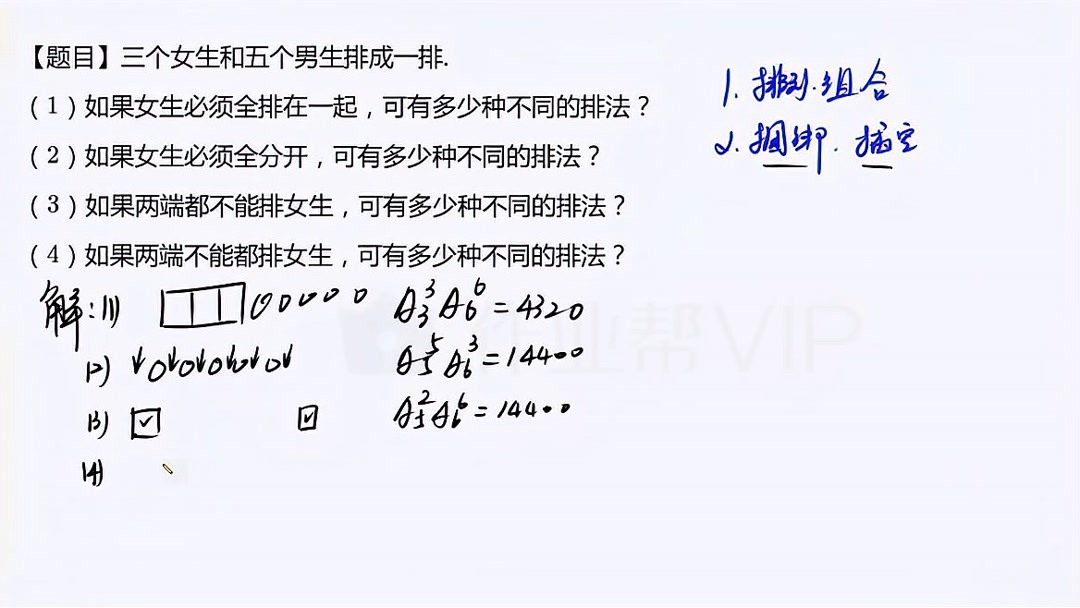 【题目】三个女生和五个男生排成一排.
（1）如果女生必须全排在一起，可有多少种不同的排法？
（2）如果女生必须全分开，可有多少种不同的排法？
（3）如果两端都不能排女生，可有多少种不同的排法？
（4）如果两端不能都排女生，可有多少种不同的排法？
1. 排列.组合
2. 捆绑. 插空
解:(1) A₃³A₆⁶=4320
(2) A₅⁵A₆³=14400
(3) A₅²A₆⁶=14400
(4)
作业帮VIP